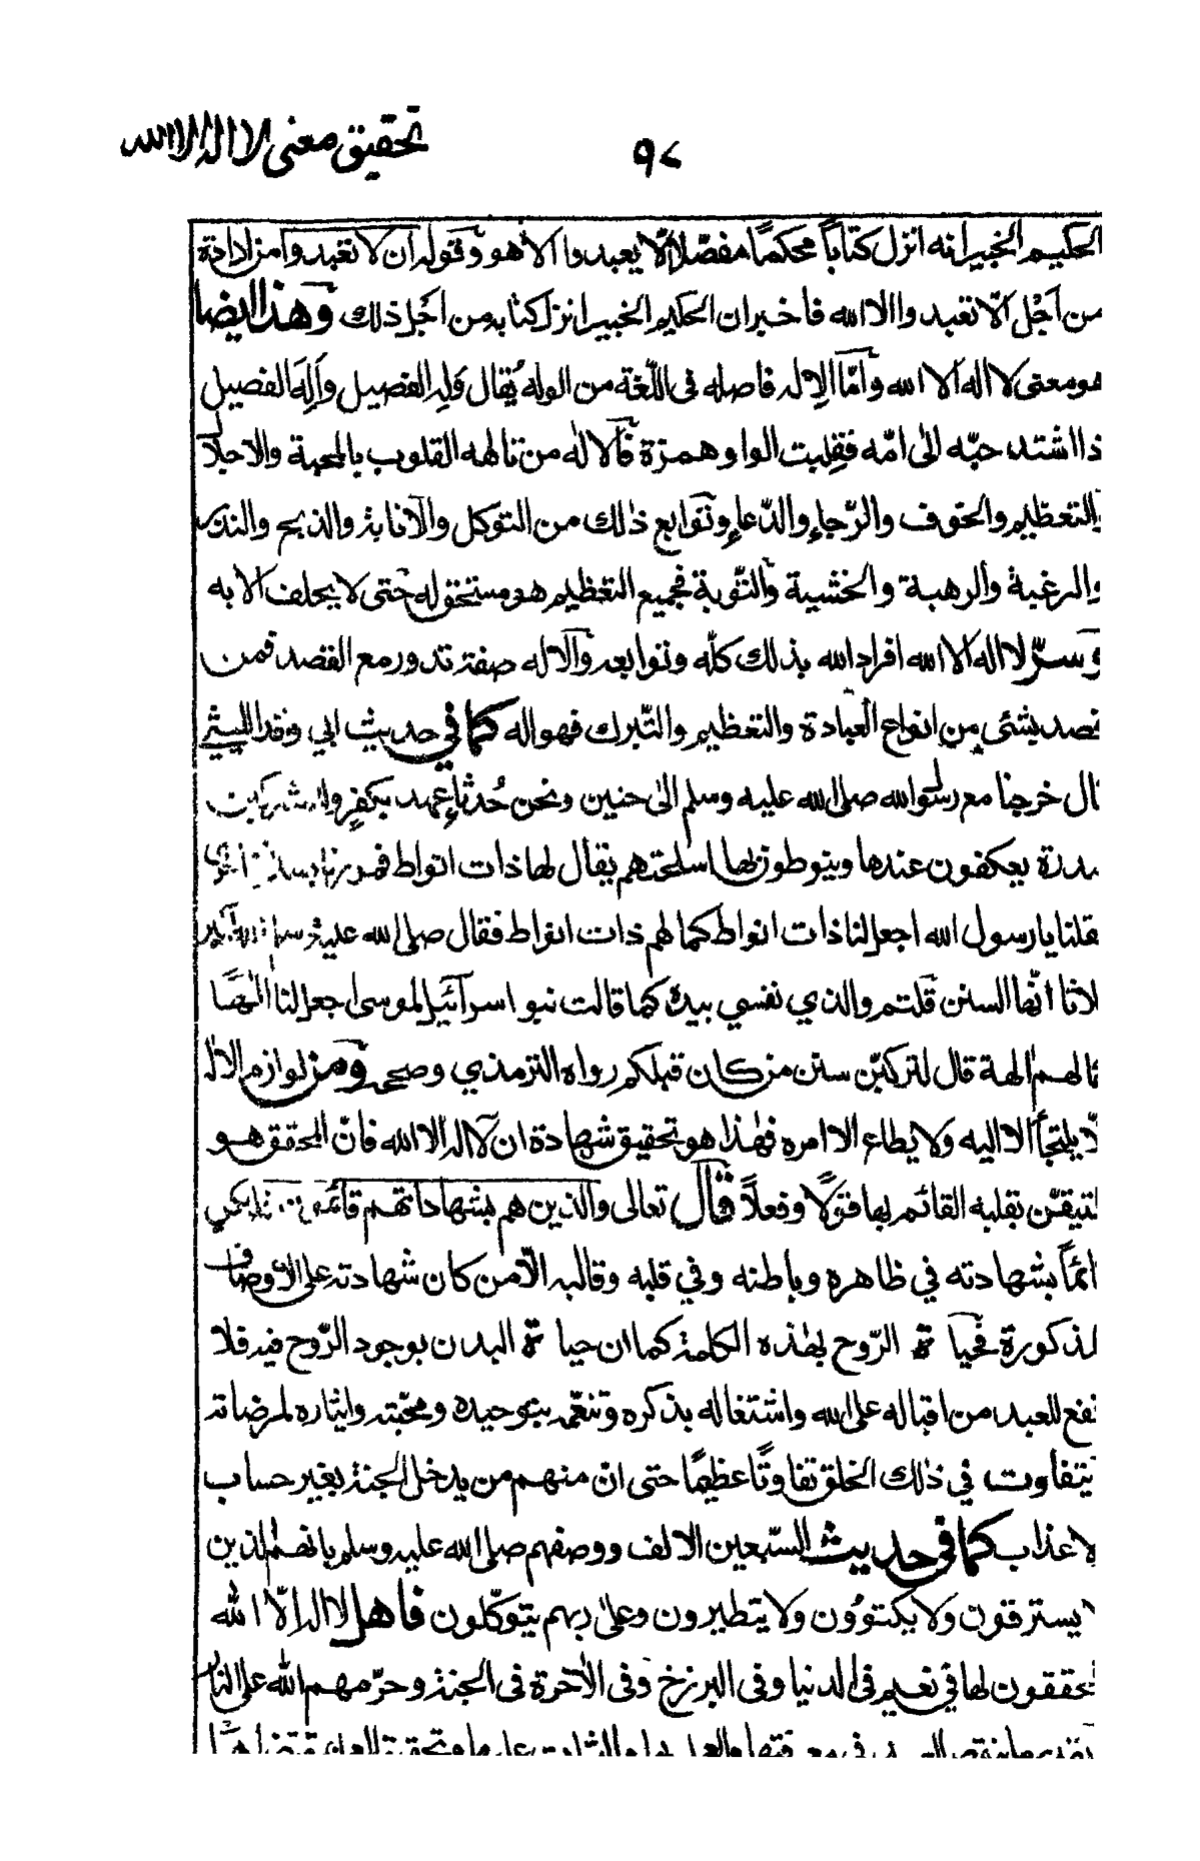 تحقيق معنى لا اله الا الله
٩٨
الحكيم الخبير انه انزل كتاباً محكماً مفصّلاً لّا يعبدوا الا هو وقوله ان لا تعبدوا من ارادة
من اَجْل اَلّا تعبدوا الا الله فاخبر ان الحكيم الخبير انزل كتابه من اَجْل ذلك وهذا ايضا
هو معنى لا اله الا الله وامّا الإله فاصله فى اللّغة من الوله يُقال وَلِه الفصيل وأَلِهَ الفصيل
ذا اشتد حبّه الى امّه فقلبت الواو همزة فالاله من تالهه القلوب بالمحبة والاجلال
والتعظيم والخوف والرّجاء والدّعاء وتوابع ذلك من التوكل والانابة والذبح والنذر
والرغبة والرهبة والخشية والتّوبة فجميع التعظيم هو مستحق له حتى لا يحلف الا به
وسرّ لا اله الا الله افراد الله بذلك كلّه وتوابعه والاله صفة تدور مع القصد فمن
قصد بشئ من انواع العبادة والتعظيم والتّبرك فهو اله كما في حديث ابي وقد الليثي
قال خرجنا مع رسول الله صلى الله عليه وسلم الى حنين ونحن حُدثاءِ عهد بكفرٍ وللمشركين
سدرة يعكفون عندها وينوطون بها اسلحتهم يقال لها ذات انواط فمررنا بسدرة اخرى
فقلنا يا رسول الله اجعل لنا ذات انواط كما لهم ذات انواط فقال صلى الله عليه وسلم الله اكبر
ثلاثا انّها السنن قلتم والذي نفسي بيده كما قالت بنو اسرآئيل لموسى اجعل لنا الٰهًا
كما لهم الهة قال لتركبّن سنن من كان قبلكم رواه الترمذي وصححه ومن لوازم الاله
لّا يلتجأ الا اليه ولا يطاع الا امره فهٰذا هو تحقيق شهادة ان لا اله الا الله فانّ المحقق هو
المتيقّن بقلبه القائم بها قولًا وفعلًا قال تعالى والذين هم بشهاداتهم قائمون
ائماً بشهادته في ظاهره وباطنه وفي قلبه وقالبه الّا من كان شهادته على الاوصاف
لمذكورة فحياة الرّوح بهٰذه الكلمة كما ان حياة البدن بوجود الرّوح فيه فلا
نفع للعبد من اقباله على الله واشتغاله بذكره وتنعّمه بتوحيده ومحّبته وايثاره لمرضاته
يتفاوت في ذٰلك الخلق تفاوتًا عظيمًا حتى انّ منهم من يدخل الجنة بغير حساب
ولا عذاب كما فى حديث السّبعين الالف ووصفهم صلى الله عليه وسلم بانهم الذين
لا يسترقون ولا يكتوُون ولا يتطيرون وعلى ربهم يتوكّلون فاهل لا اله الّا الله
لمحققون لها في نعيم فى الدنيا وفى البرزخ وفى الاٰخرة فى الجنة وحرّمهم الله على النار